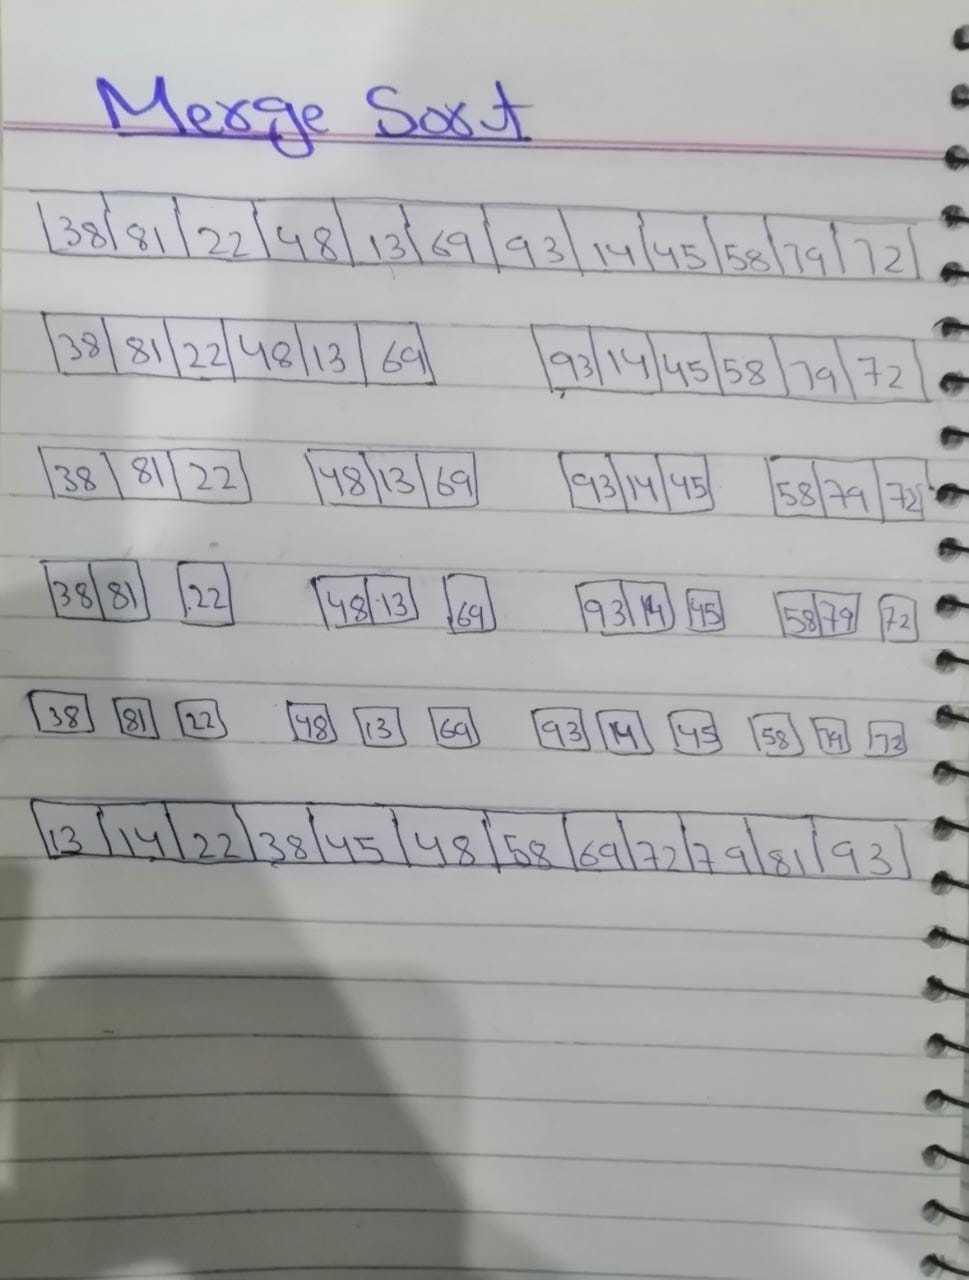 Merge Sort
38 81 22 48 13 69 93 14 45 58 79 72
38 81 22 48 13 69 93 14 45 58 79 72
38 81 22 48 13 69 93 14 45 58 79 72
38 81 22 48 13 69 93 14 45 58 79 72
38 81 22 48 13 69 93 14 45 58 79 72
13 14 22 38 45 48 58 69 72 79 81 93